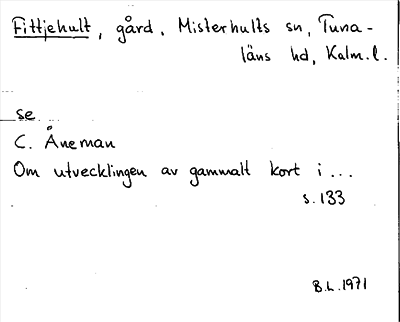 Fittjehult, gård, Misterhults sn, Tuna-
läns hd, Kalm.l.
se
C. Åneman
Om utvecklingen av gammalt kort i ...
s. 133
B.L. 1971